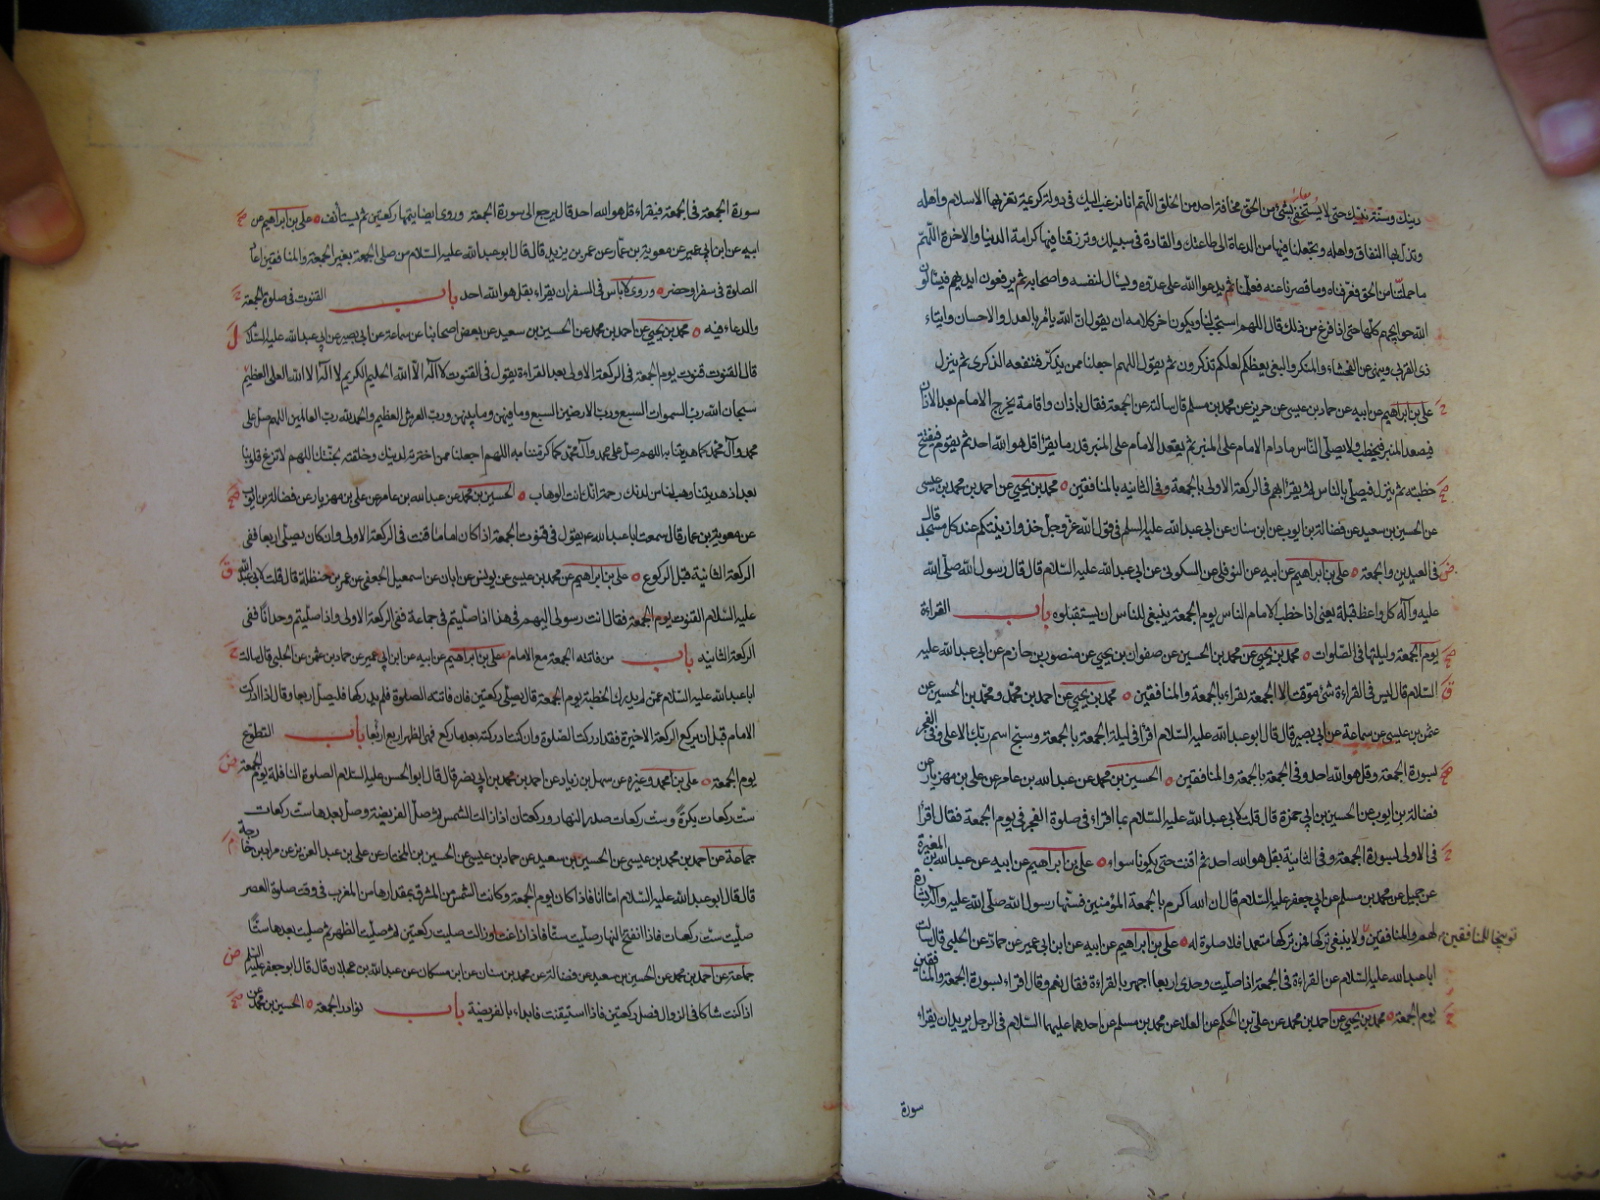 دينك وسنة نبيك حتى لا يستخفي بشئ من الحق مخافة احد من الخلق اللهم انا نرغب اليك في دولة كريمة تعز بها الاسلام واهله
وتذل بها النفاق واهله وتجعلنا فيها من الدعاة الى طاعتك والقادة في سبيلك وترزقنا فيها كرامة الدنيا والاخرة اللهم
ما حملتنا من الحق فعرفناه وما قصرنا عنه فعلمناه ثم يدعو الله على عدوه ويسأل لنفسه واصحابه ثم يرفعون ايديهم فيسألون
الله حوايجهم كلها حتى اذا فرغ من ذلك قال اللهم استجب لنا ويكون اخر كلامه ان يقول ان الله يأمر بالعدل والاحسان وايتاء
ذى القربى وينهى عن الفحشاء والمنكر والبغي يعظكم لعلكم تذكرون ثم يقول اللهم اجعلنا ممن يذكر فتنفعه الذكرى ثم ينزل
على بن ابراهيم عن ابيه عن حماد بن عيسى عن حريز عن محمد بن مسلم قال سالته عن الجمعة فقال باذان واقامة يخرج الامام بعد الاذان
فيصعد المنبر فيخطب ولا يصلى الناس ما دام الامام على المنبر ثم يقعد الامام على المنبر قدر ما يقرأ قل هو الله احد ثم يقوم فيفتتح
خطبته ثم ينزل فيصلى بالناس ثم يقرأ بهم في الركعة الاولى بالجمعة وفي الثانية بالمنافقين محمد بن يحيى عن احمد بن محمد بن عيسى
عن الحسين بن سعيد عن فضالة بن ايوب عن ابن سنان عن ابى عبد الله عليه السلم في قول الله عز وجل خذوا زينتكم عند كل مسجد قال
في العيدين والجمعة على بن ابراهيم عن ابيه عن النوفلى عن السكونى عن ابى عبد الله عليه السلام قال قال رسول الله صلى الله
عليه وآله كل واعظ قبلة يعنى اذا خطب الامام الناس يوم الجمعة ينبغى للناس ان يستقبلوه باب القراءة
يوم الجمعة وليلتها في الصلوات محمد بن يحيى عن محمد بن الحسين عن صفوان بن يحيى عن منصور بن حازم عن ابى عبد الله عليه
السلام قال ليس في القراءة شئ موقت الا الجمعة يقراء بالجمعة والمنافقين محمد بن يحيى عن احمد بن محمد ومحمد بن الحسين عن
عثمن بن عيسى عن سماعة عن ابى بصير قال قال ابو عبد الله عليه السلام اقرأ في ليلة الجمعة بالجمعة وسبح اسم ربك الاعلى وفي الفجر
بسورة الجمعة وقل هو الله احد وفي الجمعة بالجمعة والمنافقين الحسين بن محمد عن عبد الله بن عامر عن على بن مهزيار عن
فضالة بن ايوب عن الحسين بن ابى حمزة قال قلت لابى عبد الله عليه السلام بما اقراء في صلوة الفجر في يوم الجمعة فقال اقرأ
في الاولى بسورة الجمعة وفي الثانية بقل هو الله احد ثم اقنت حتى يكونا سواء على بن ابراهيم عن ابيه عن عبد الله بن المغيرة
عن جميل عن محمد بن مسلم عن ابى جعفر عليه السلام قال ان الله اكرم بالجمعة المؤمنين فسنها رسول الله صلى الله عليه وآله بشارة
لهم والمنافقين توبيخا للمنافقين ولا ينبغى تركها فمن تركها متعمدا فلا صلوة له على بن ابراهيم عن ابيه عن ابن ابى عمير عن حماد عن الحلبى قال سالت
ابا عبد الله عليه السلام عن القراءة في الجمعة اذا صليت وحدى اربعا اجهر بالقراءة فقال نعم وقال اقراء بسورة الجمعة والمنافقين
يوم الجمعة محمد بن يحيى عن احمد بن محمد عن على بن الحكم عن العلاء عن محمد بن مسلم عن احدهما عليهما السلام في الرجل يريد ان يقراء
سورة
سورة الجمعة في الجمعة فيقراء قل هو الله احد قال يرجع الى سورة الجمعة وروى ايضا يتمها ركعتين ثم يستأنف على بن ابراهيم عن
ابيه عن ابن ابى عمير عن معوية بن عمار عن عمر بن يزيد قال قال ابو عبد الله عليه السلام من صلى الجمعة بغير الجمعة والمنافقين اعاد
الصلوة في سفر او حضر وروى لا بأس في السفر ان يقراء بقل هو الله احد باب القنوت في صلوة الجمعة
والدعاء فيه محمد بن يحيى عن احمد بن محمد عن الحسين بن سعيد عن بعض اصحابنا عن سماعة عن ابى بصير عن ابى عبد الله عليه السلام
قال القنوت قنوت يوم الجمعة في الركعة الاولى بعد القراءة يقول في القنوت لا اله الا الله الحليم الكريم لا اله الا الله العلى العظيم
سبحان الله رب السموات السبع ورب الارضين السبع وما فيهن وما بينهن ورب العرش العظيم والحمد لله رب العالمين اللهم صل على
محمد وآل محمد كما هديتنا به اللهم صل على محمد وآل محمد كما كرمتنا به اللهم اجعلنا ممن اخترته لدينك وخلقته لجنتك اللهم لا تزغ قلوبنا
بعد اذ هديتنا وهب لنا من لدنك رحمة انك انت الوهاب الحسين بن محمد عن عبد الله بن عامر عن على بن مهزيار عن فضالة بن ايوب
عن معوية بن عمار قال سمعت ابا عبد الله ع يقول في قنوت الجمعة اذا كان اماما قنت في الركعة الاولى وان كان يصلى اربعا ففى
الركعة الثانية قبل الركوع على بن ابراهيم عن محمد بن عيسى عن يونس عن ابان عن اسمعيل الجعفى عن عمر بن حنظلة قال قلت لابى عبد الله
عليه السلام القنوت يوم الجمعة فقال انت رسولى اليهم في هذا اذا صليتم في جماعة ففى الركعة الاولى واذا صليتم وحدانا ففى
الركعة الثانية باب من فاتته الجمعة مع الامام على بن ابراهيم عن ابيه عن ابن ابى عمير عن حماد بن عثمن عن الحلبى قال سالت
ابا عبد الله عليه السلام عمن لم يدرك الخطبة يوم الجمعة قال يصلى ركعتين فان فاتته الصلوة فلم يدركها فليصل اربعا وقال اذا ادركت
الامام قبل ان يركع الركعة الاخيرة فقد ادركت الصلوة وان كنت ادركته بعد ما ركع فهى الظهر اربع باب التطوع
يوم الجمعة على بن محمد وغيره عن سهل بن زياد عن احمد بن محمد بن ابى نصر قال قال ابو الحسن عليه السلام الصلوة النافلة يوم الجمعة
ست ركعات بكرة وست ركعات صدر النهار وركعتان اذا زالت الشمس ثم صل الفريضة وصل بعدها ست ركعات
جماعة عن احمد بن محمد بن عيسى عن الحسين بن سعيد عن حماد بن عيسى عن الحسين بن المختار عن على بن عبد العزيز عن مراد بن خارجة
قال قال ابو عبد الله عليه السلام اما انا فاذا كان يوم الجمعة وكانت الشمس من المشرق بمقدارها من المغرب في وقت صلوة العصر
صليت ست ركعات فاذا انتفخ النهار صليت ستا فاذا زاغت او زالت صليت ركعتين ثم صليت الظهر ثم صليت بعدها ستا
جماعة عن احمد بن محمد عن الحسين بن سعيد عن فضالة عن محمد بن سنان عن ابن مسكان عن عبد الله بن عجلان قال قال ابو جعفر عليه السلم
اذا كنت شاكا في الزوال فصل ركعتين فاذا استيقنت فابداء بالفريضة باب نوادر الجمعة الحسين بن محمد عن